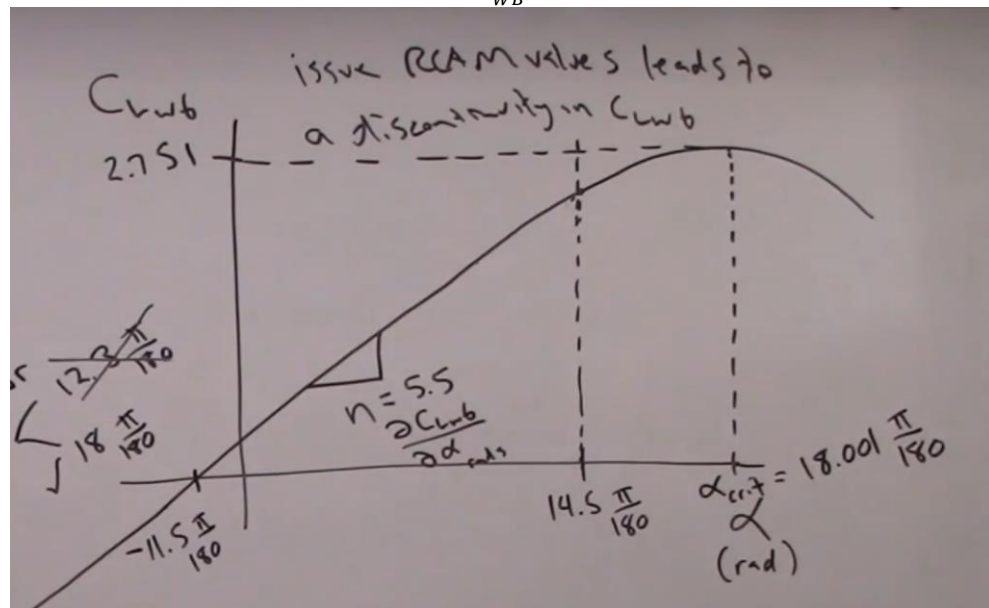 WB
issue RCAM values leads to
a discontinuity in CLwb
CLwb
2.751
12.3 π/180
18 π/180
n = 5.5
∂CLwb/∂α rads
-11.5 π/180
14.5 π/180
αcrit = 18.001 π/180
α
(rad)